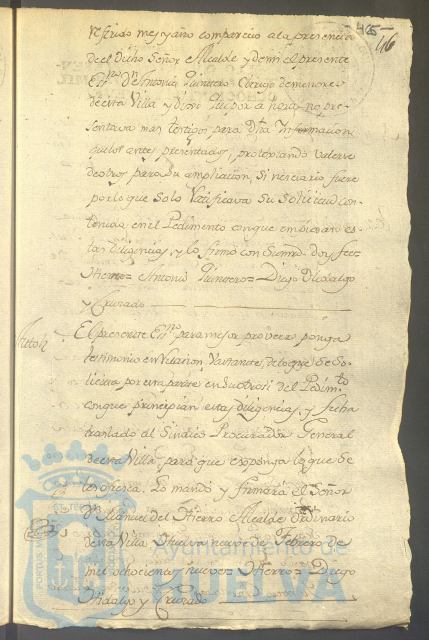 46
referido mes y año comparecio a la presencia
de el dicho Señor Alcalde y de mi el presente
Essno Dn Antonio Quintero Clerigo de menores
de esta Villa y dijo: Que por a hora no pre-
sentava mas testigos para dha Informacion
que los antes presentados, protextando valerse
de otros para su ampliacion, si necesario fuere
por lo que solo ratificava su solicitud con-
tenida en el Pedimento con que empiesan es-
tas diligencias, y lo firmó con su mrd doy fee=
Hierro= Antonio Quintero= Diego Hidalgo
y Cruzado
Auto
El presente Essno para mejor proveer ponga
testimonio en relacion, vastante, de lo que se so-
licita por esta parte en su otrosi del Pedimto
con que principian estas diligencias, y fecha
traslado al Sindico Procurador General
de esta Villa, para que exponga lo que se
le ofresca. Lo mandó y firmará el Señor
Dn Manuel del Hierro Alcalde Ordinario
de esta Villa Huelva nueve de Febrero de
mil ochocientos nueve= Hierro= Diego
Hidalgo y Cruzado
Ayuntamiento de
HUELVA